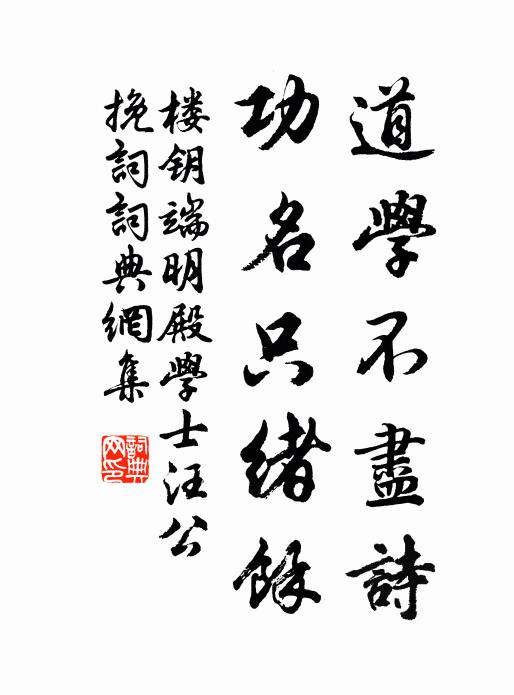 道學不盡詩
功名只緒餘
楼钥端明殿學士汪公
挽詞詞典網集
詞典网印